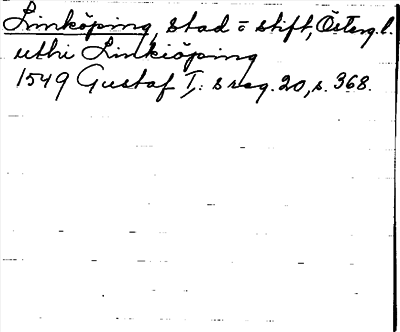 Linköping, stad o stift, Österg.l.
uthi Linkiöping
1549 Gustaf I:s reg. 20, s. 368.